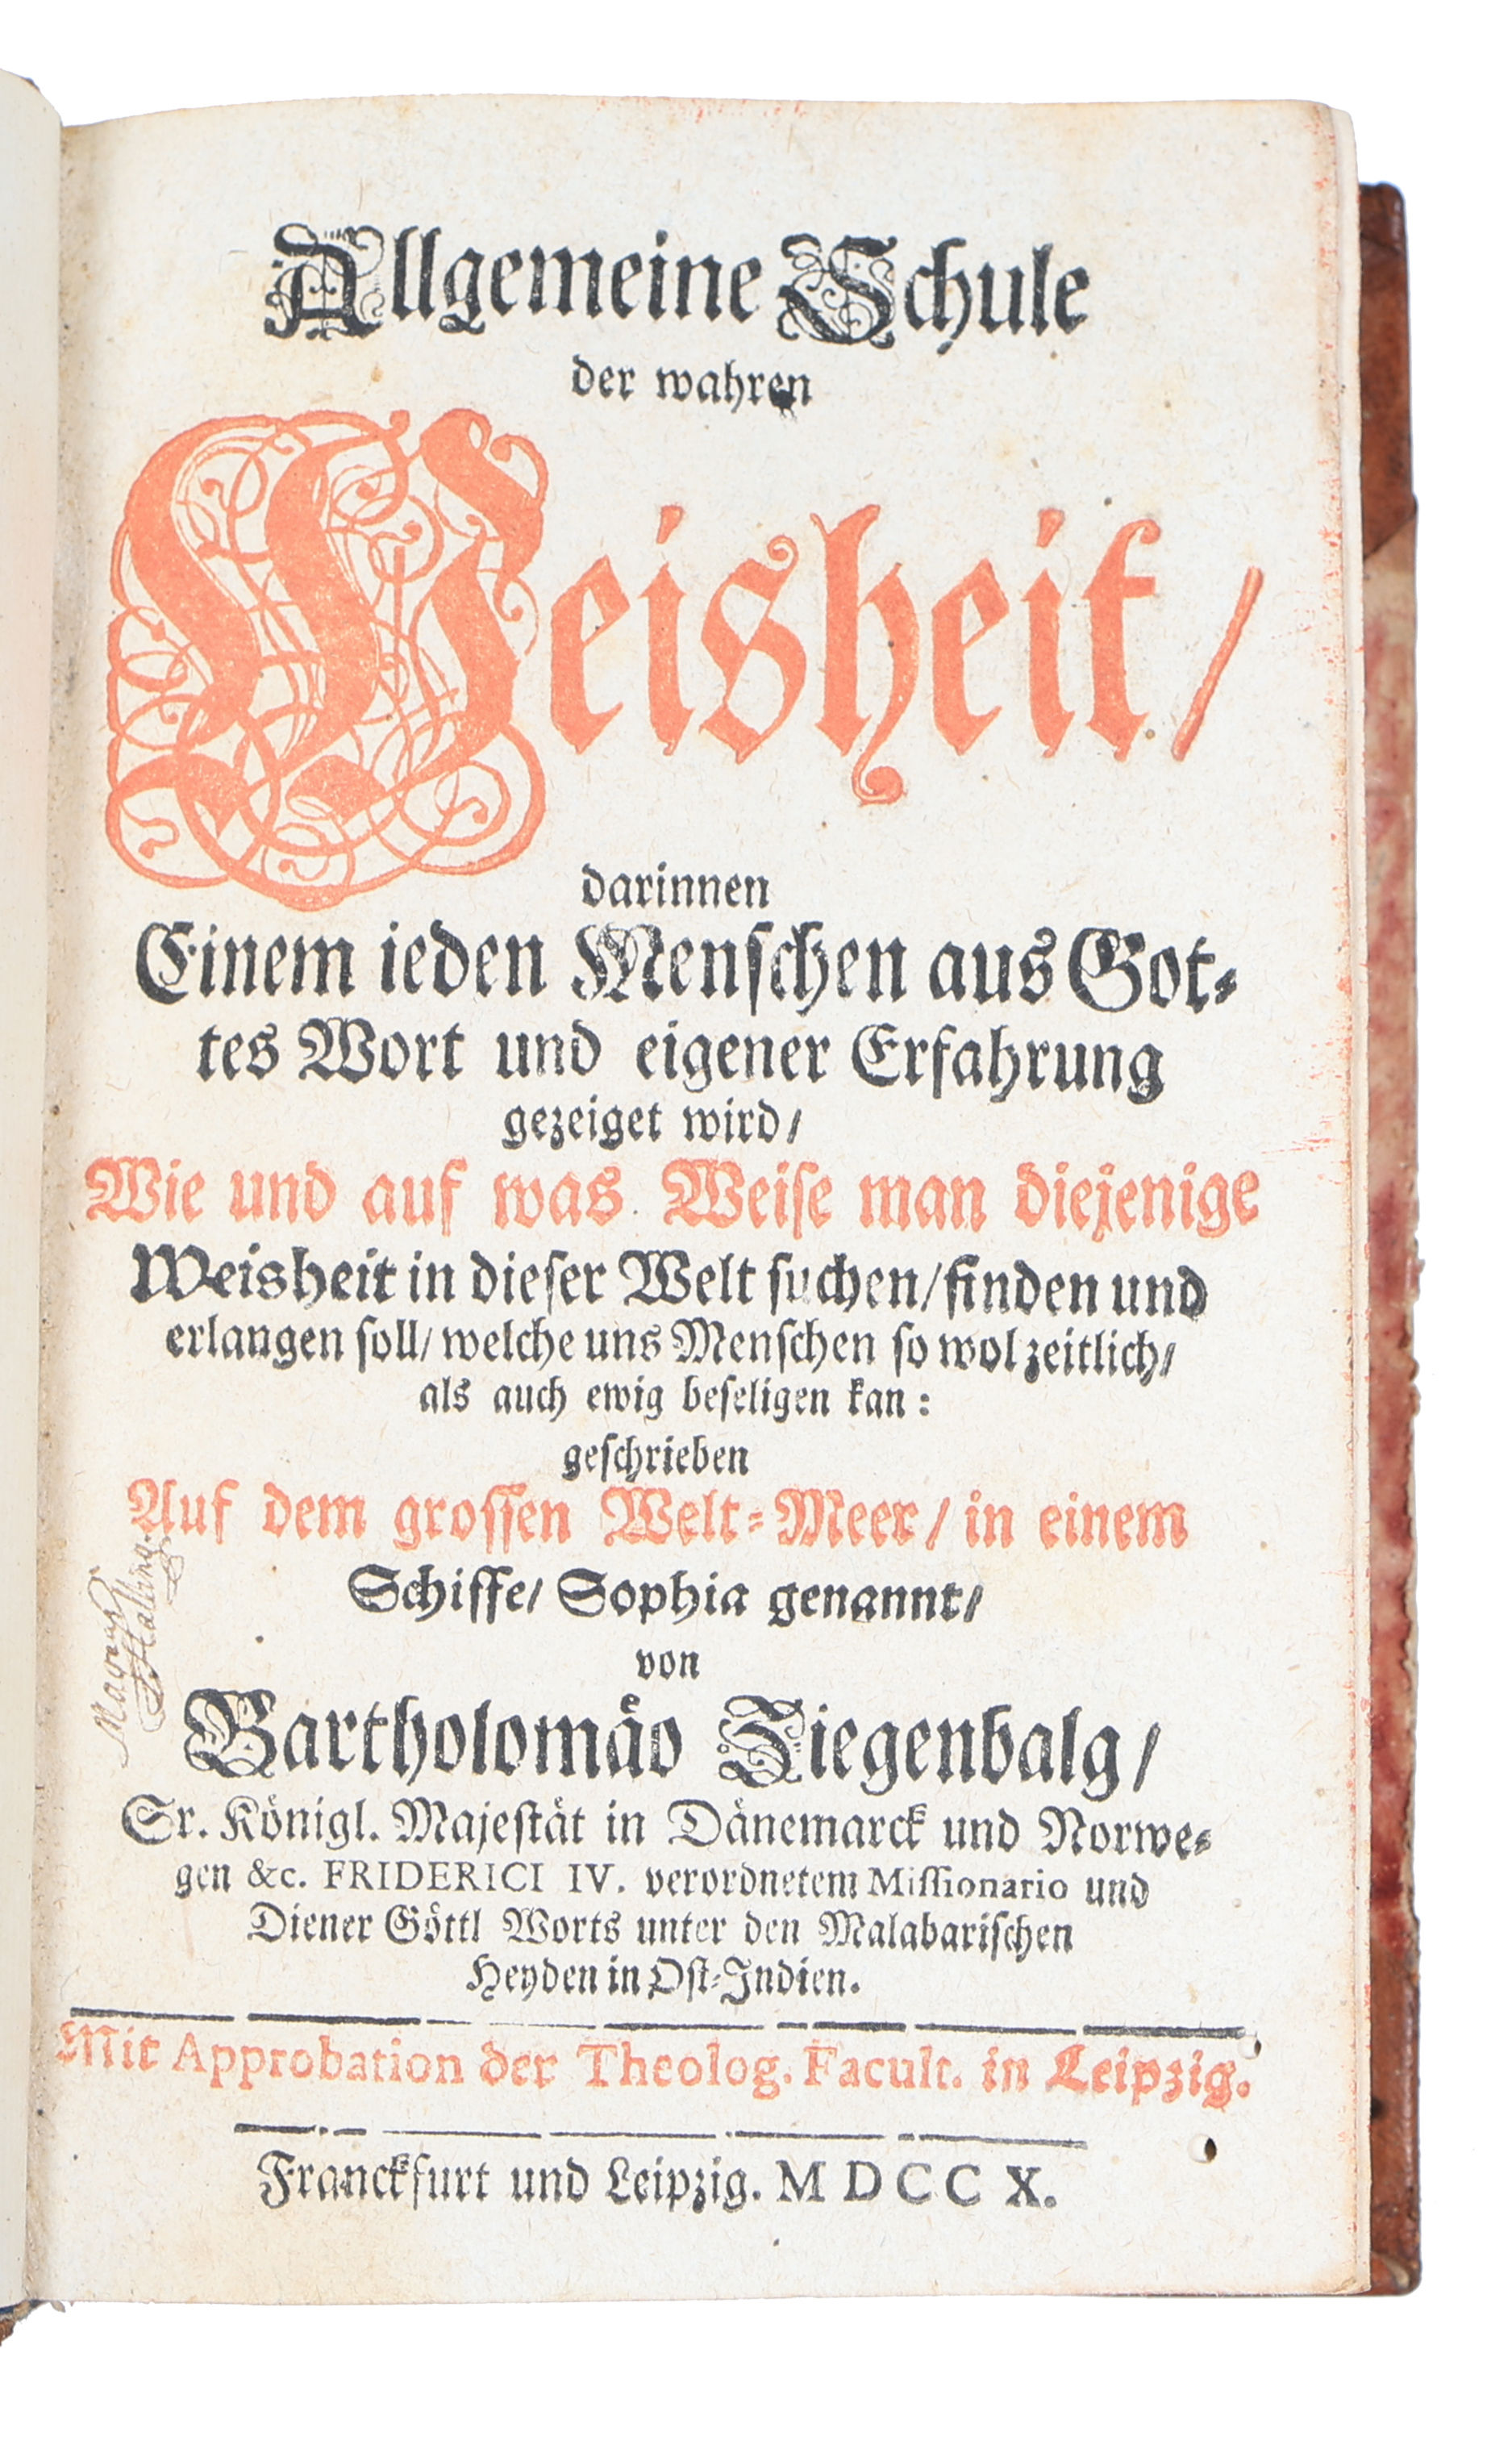 Allgemeine Schule
der wahren
Weisheit/
darinnen
Einem ieden Menschen aus Got-
tes Wort und eigener Erfahrung
gezeiget wird/
Wie und auf was Weise man diejenige
Weisheit in dieser Welt suchen/ finden und
erlangen soll/ welche uns Menschen so wol zeitlich/
als auch ewig beseligen kan:
geschrieben
Auf dem grossen Welt-Meer/ in einem
Schiffe/ Sophia genannt/
von
Bartholomäo Ziegenbalg/
Sr. Königl. Majestät in Dänemarck und Norwe-
gen &c. FRIDERICI IV. verordnetem Missionario und
Diener Göttl Worts unter den Malabarischen
Heyden in Ost-Indien.
Mit Approbation der Theolog. Facult. in Leipzig.
Franckfurt und Leipzig. MDCCX.